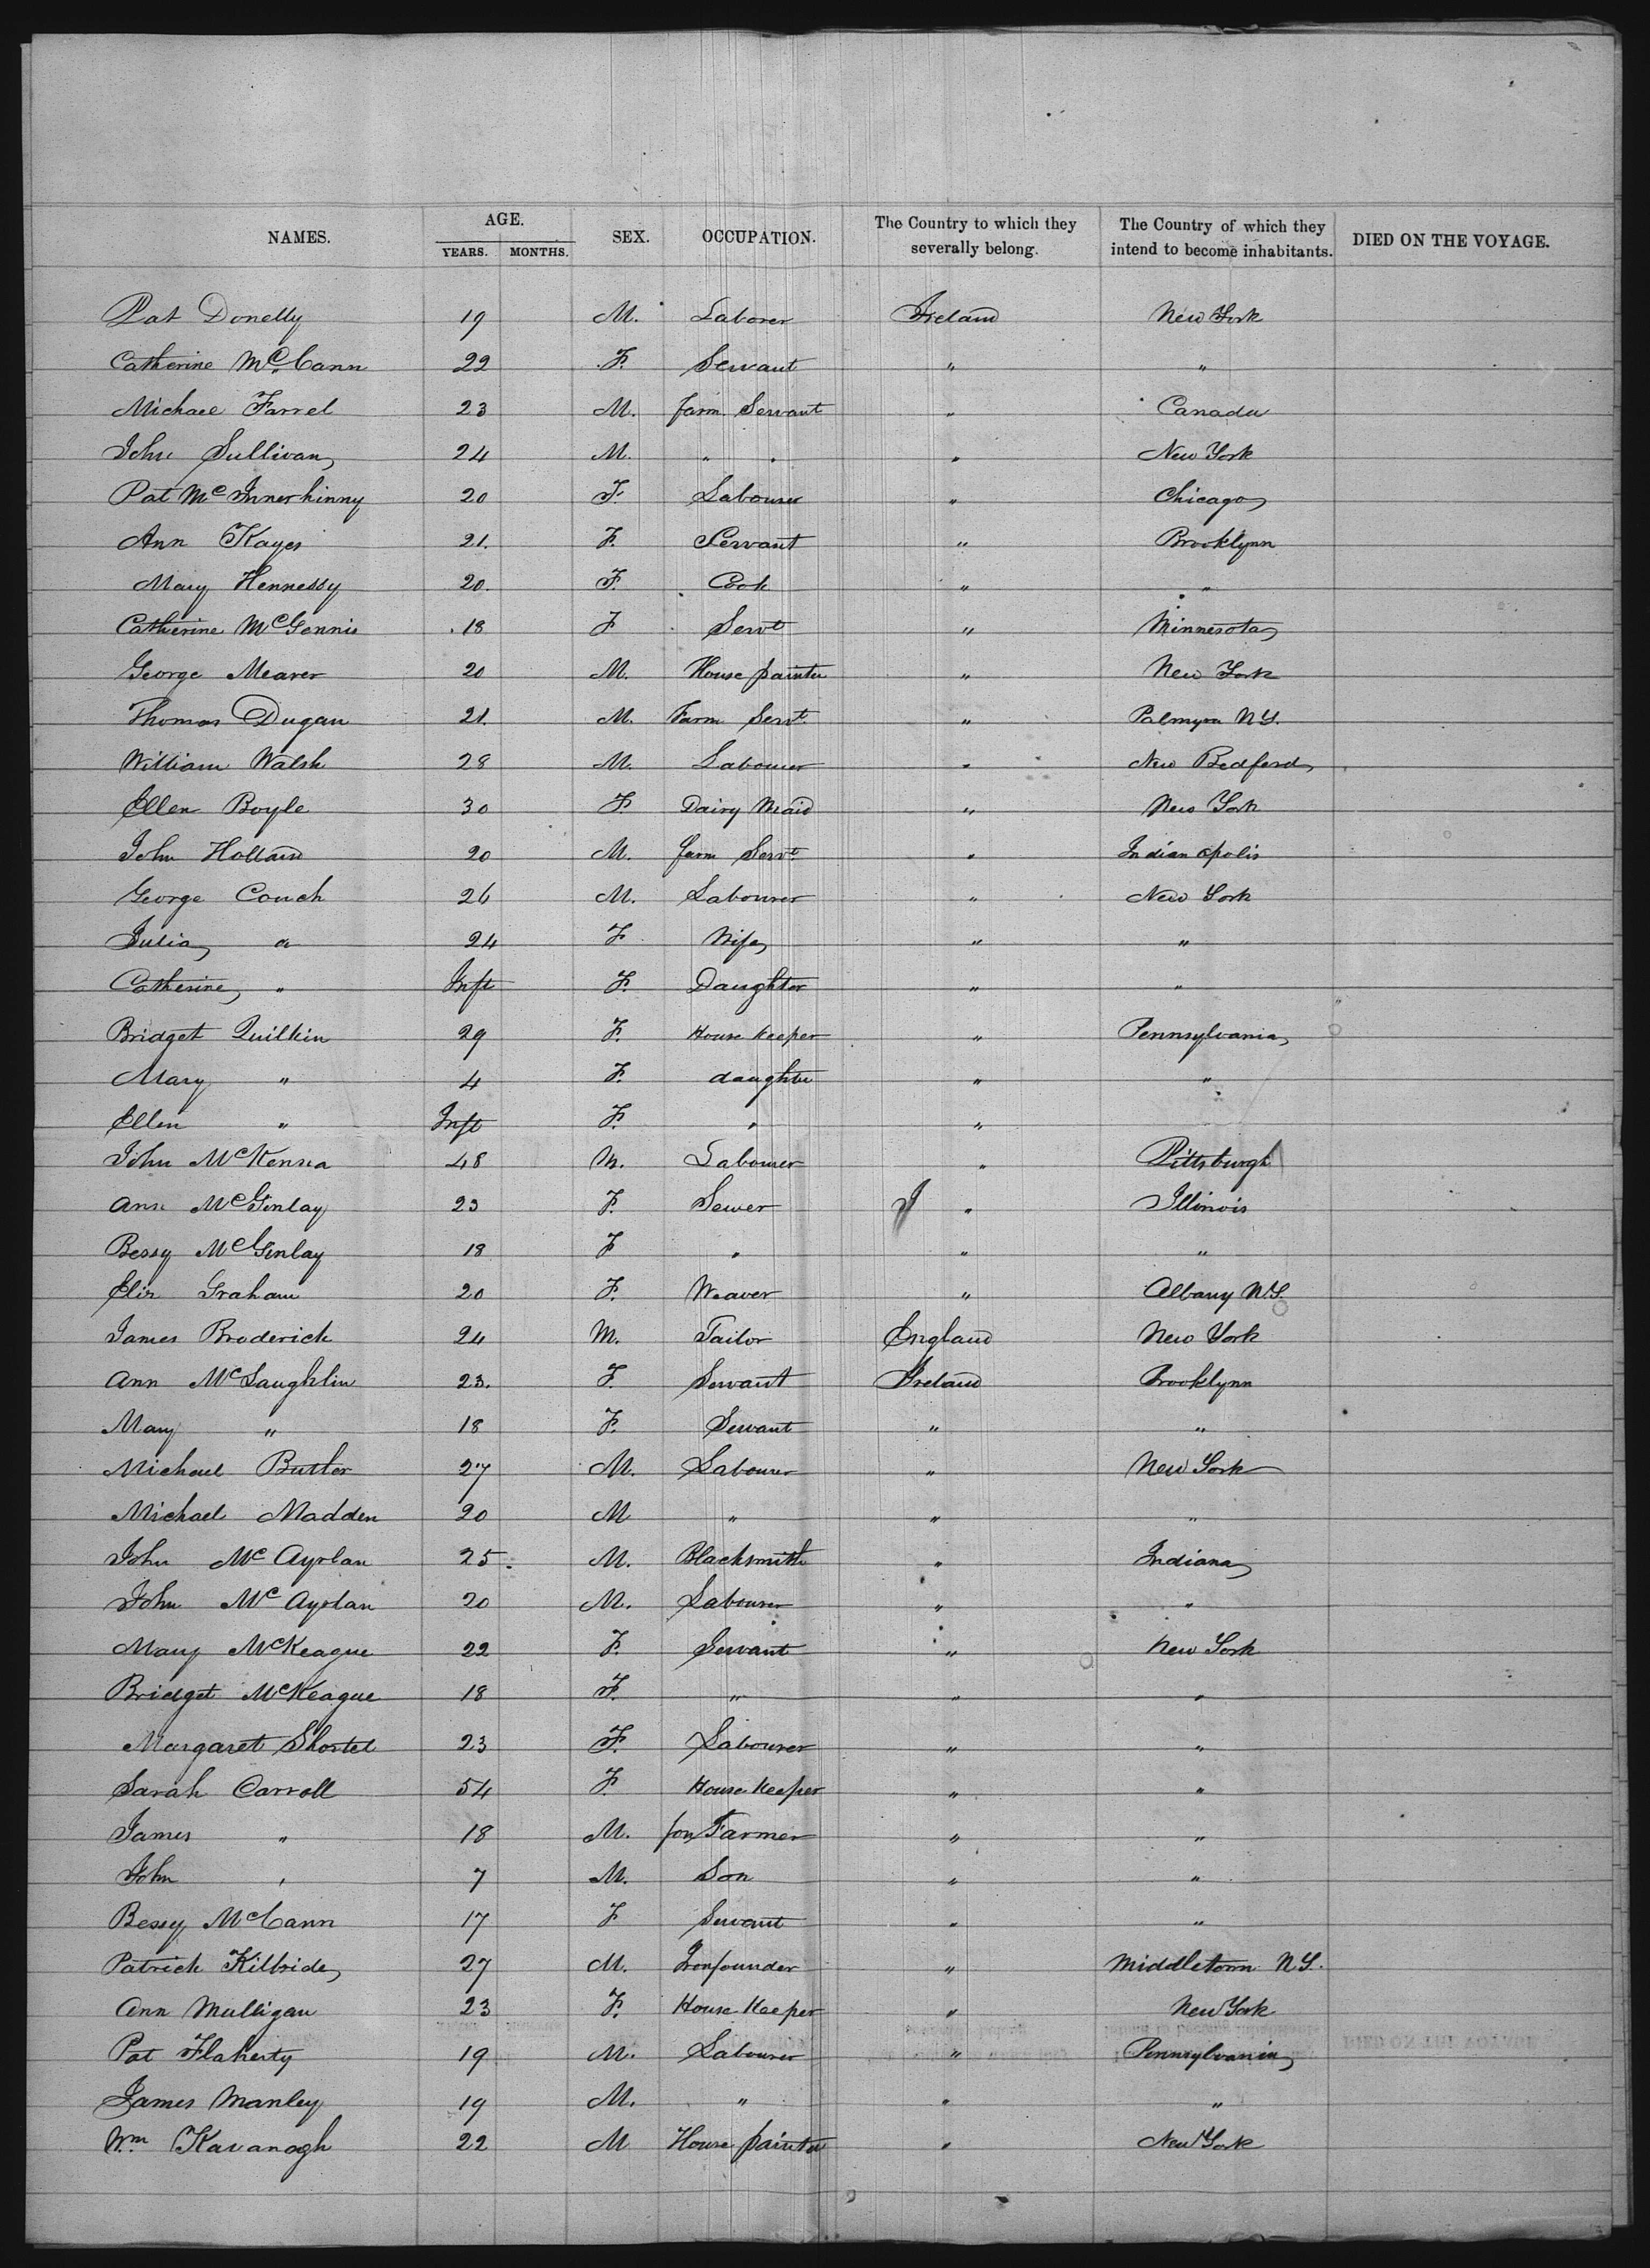 NAMES. AGE. YEARS. MONTHS. SEX. OCCUPATION. The Country to which they severally belong. The Country of which they intend to become inhabitants. DIED ON THE VOYAGE.
Pat Donelly 19 M. Laborer Ireland New York
Catherine McCann 22 F. Servant " "
Michael Farrel 23 M. farm Servant " Canada
John Sullivan 24 M. " " " New York
Pat McInnerhinny 20 F. Labourer " Chicago
Ann Kayes 21. F. Servant " Brooklynn
Mary Hennessy 20. F. Cook " "
Catherine McGennis 18 F Servt " Minnesota
George Mearer 20 M. House painter " New York
Thomas Dugan 21. M. Farm Servt " Palmyra N.Y.
William Walsh 28 M. Labourer " New Bedford
Ellen Boyle 30 F. Dairy Maid " New York
John Holland 20 M. farm Servt " Indian opolis
George Couch 26 M. Labourer " New York
Julia " 24 F Wife " "
Catherine " Inft F. Daughter " "
Bridget Quilkin 29 F. House Keeper " Pennsylvania
Mary " 4 F. daughter " "
Ellen " Inft F. " "
John McKenna 48 M. Labourer " Pittsburgh
Ann McGinlay 23 F. Sewer " Illinois
Bessy McGinlay 18 F " " "
Eliz Graham 20 F. Weaver " Albany N.Y.
James Broderick 24 M. Tailor England New York
Ann McLaughlin 23. F. Servant Ireland Brooklynn
Mary " 18 F. Servant " "
Michael Butler 27 M. Labourer " New York
Michael Madden 20 M " " "
John Mc 25. M. Blacksmith " Indiana
John Mc 20 M. Labourer " "
Mary McKeague 22 F. Servant " New York
Bridget McKeague 18 F. " " "
Margaret Shortel 23 F. Labourer " "
Sarah Carroll 54 F. House Keeper " "
James " 18 M. son Farmer " "
John " 7 M. Son " "
Bessy McCann 17 F Servant " "
Patrick Kilbride 27 M. Ironfounder " Middletown N.Y.
Ann Mulligan 23 F. House Keeper " New York
Pat Flaherty 19 M. Labourer " Pennsylvania
James Manley 19 M. " " "
Wm Kavanagh 22 M House painter " New York